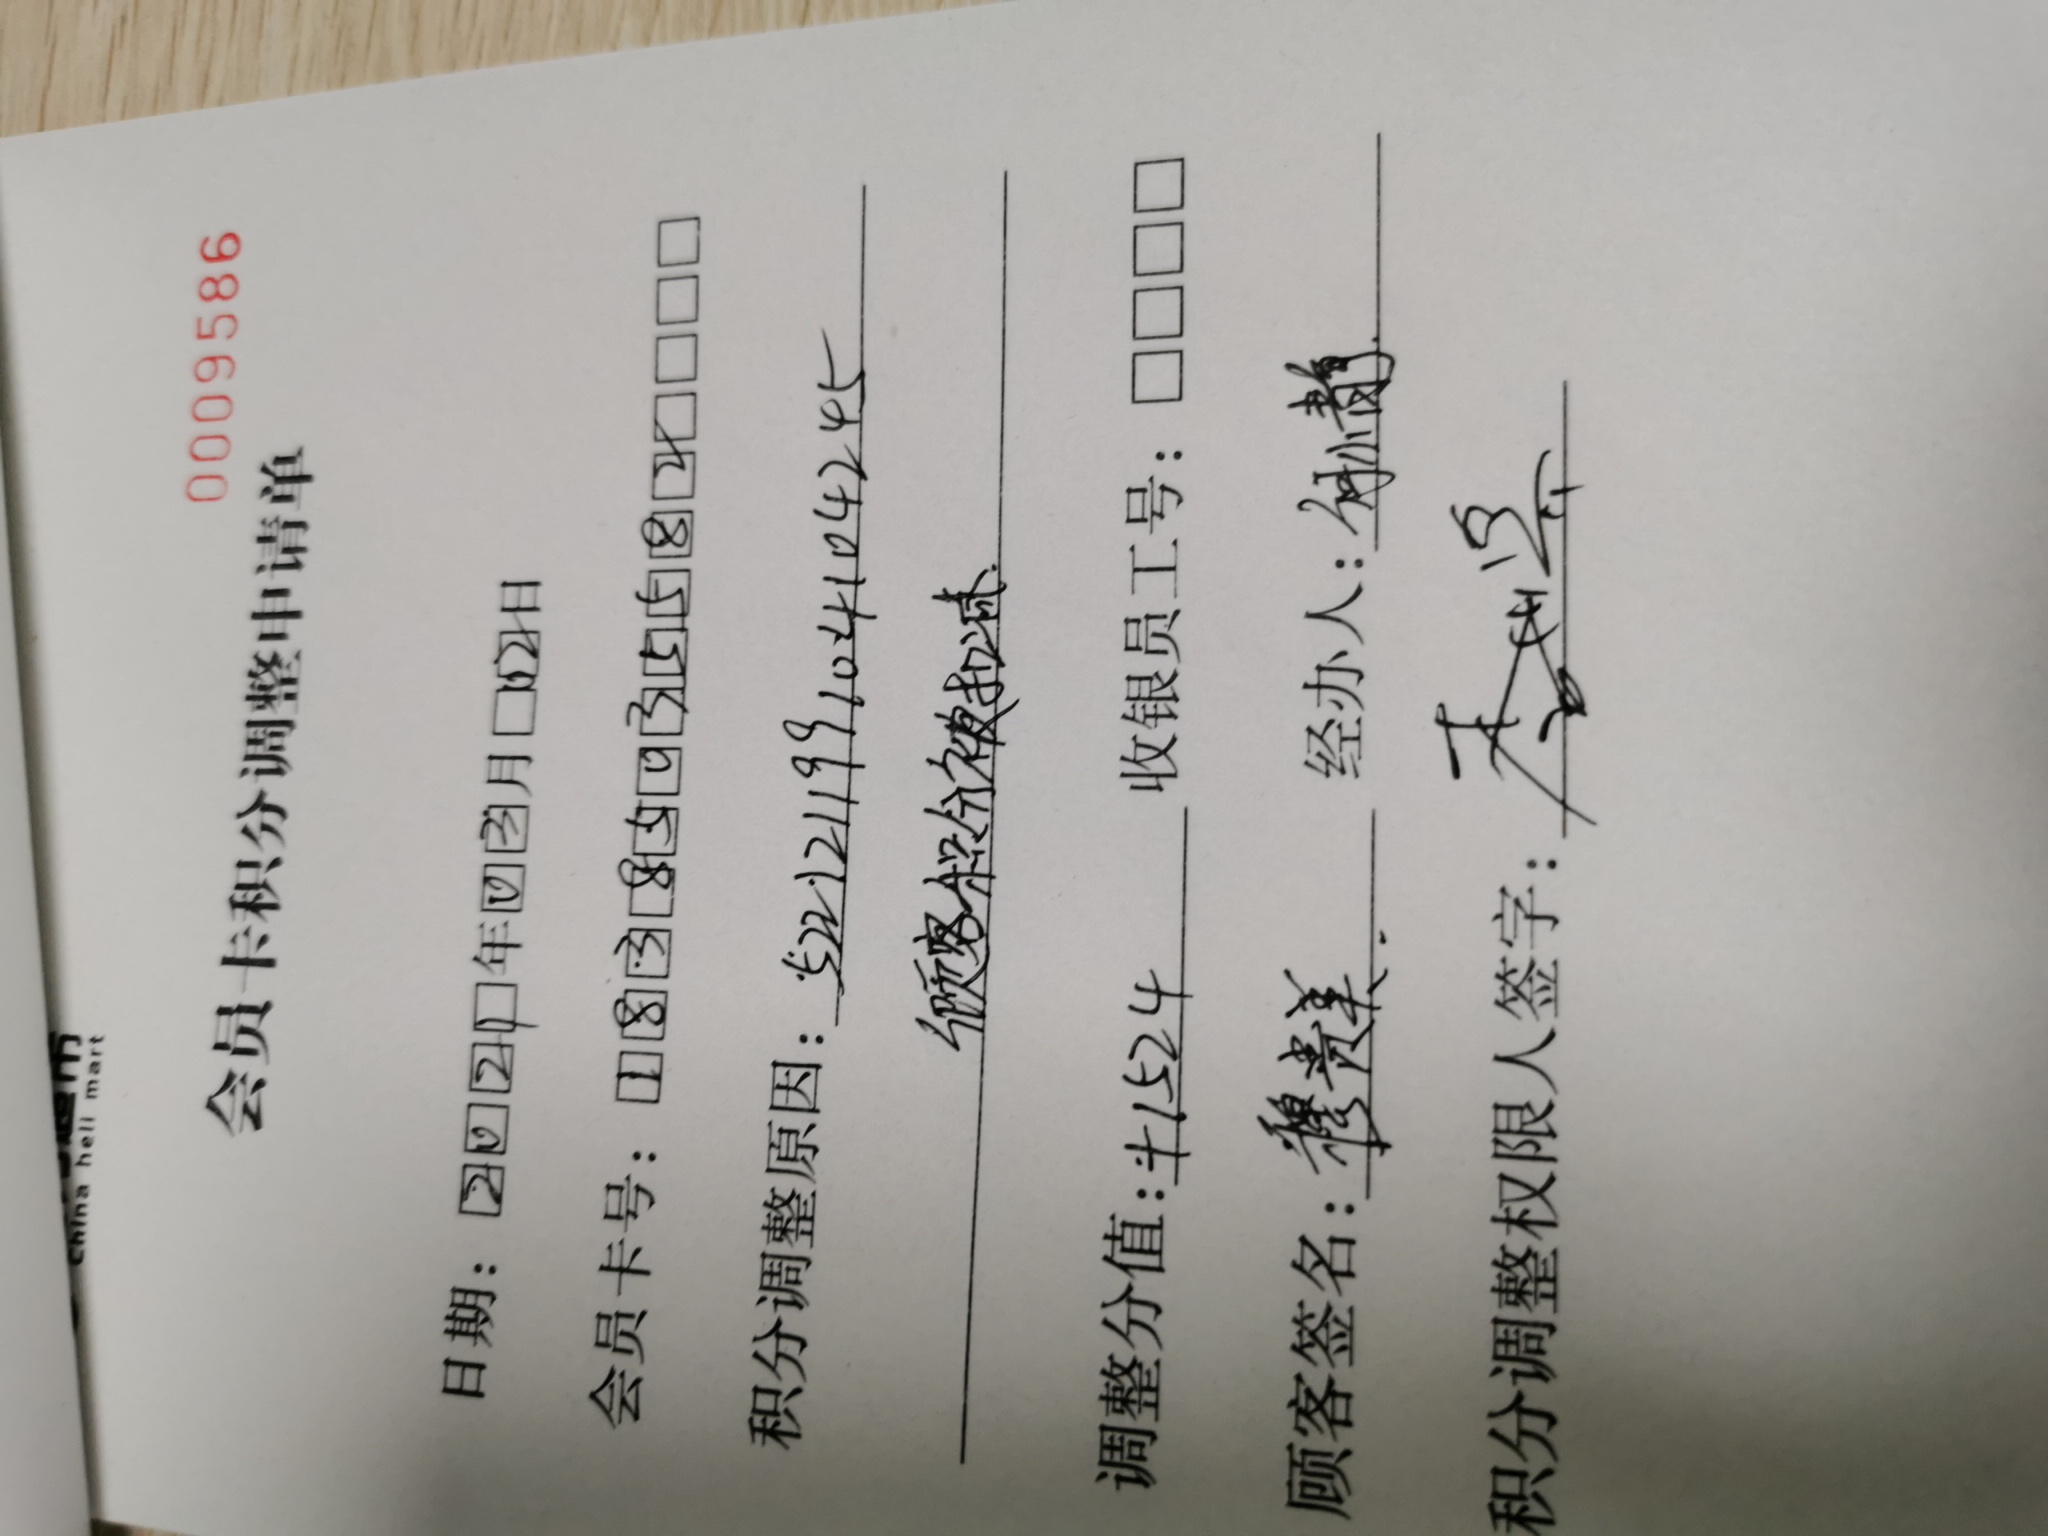 China heli mart
0009586
会员卡积分调整申请单
日期：2021年03月02日
会员卡号：18385035582
积分调整原因：522121199102041042245
顾客积分被扣减.
调整分值：+1524 收银员工号：
顾客签名： 经办人：
积分调整权限人签字：